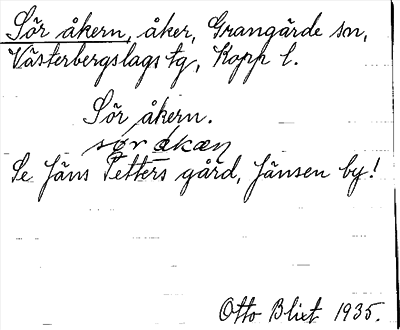 Sör åkern, åker, Grangärde sn,
Västerbergslags tg, Kopp l.
Sör åkern.
sör åkæn
Se Jäns Petters gård, Jänsen by!
Otto Blixt 1935.